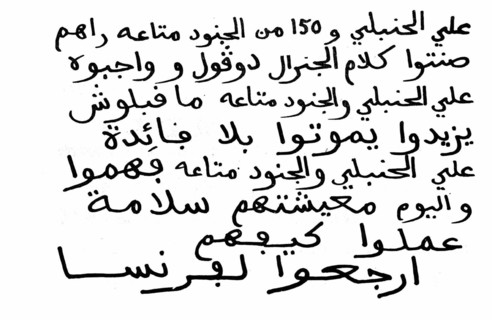 علي الحنبلي و 150 من الجنود متاعه راهم
صنتوا كلام الجنرال دوڤول و واجبوه
علي الحنبلي والجنود متاعه ما قبلوش
يزيدوا يموتوا بلا فائدة
علي الحنبلي والجنود متاعه فهموا
واليوم معيشتهم سلامة
عملوا كيفهم
ارجعوا لفرنسا